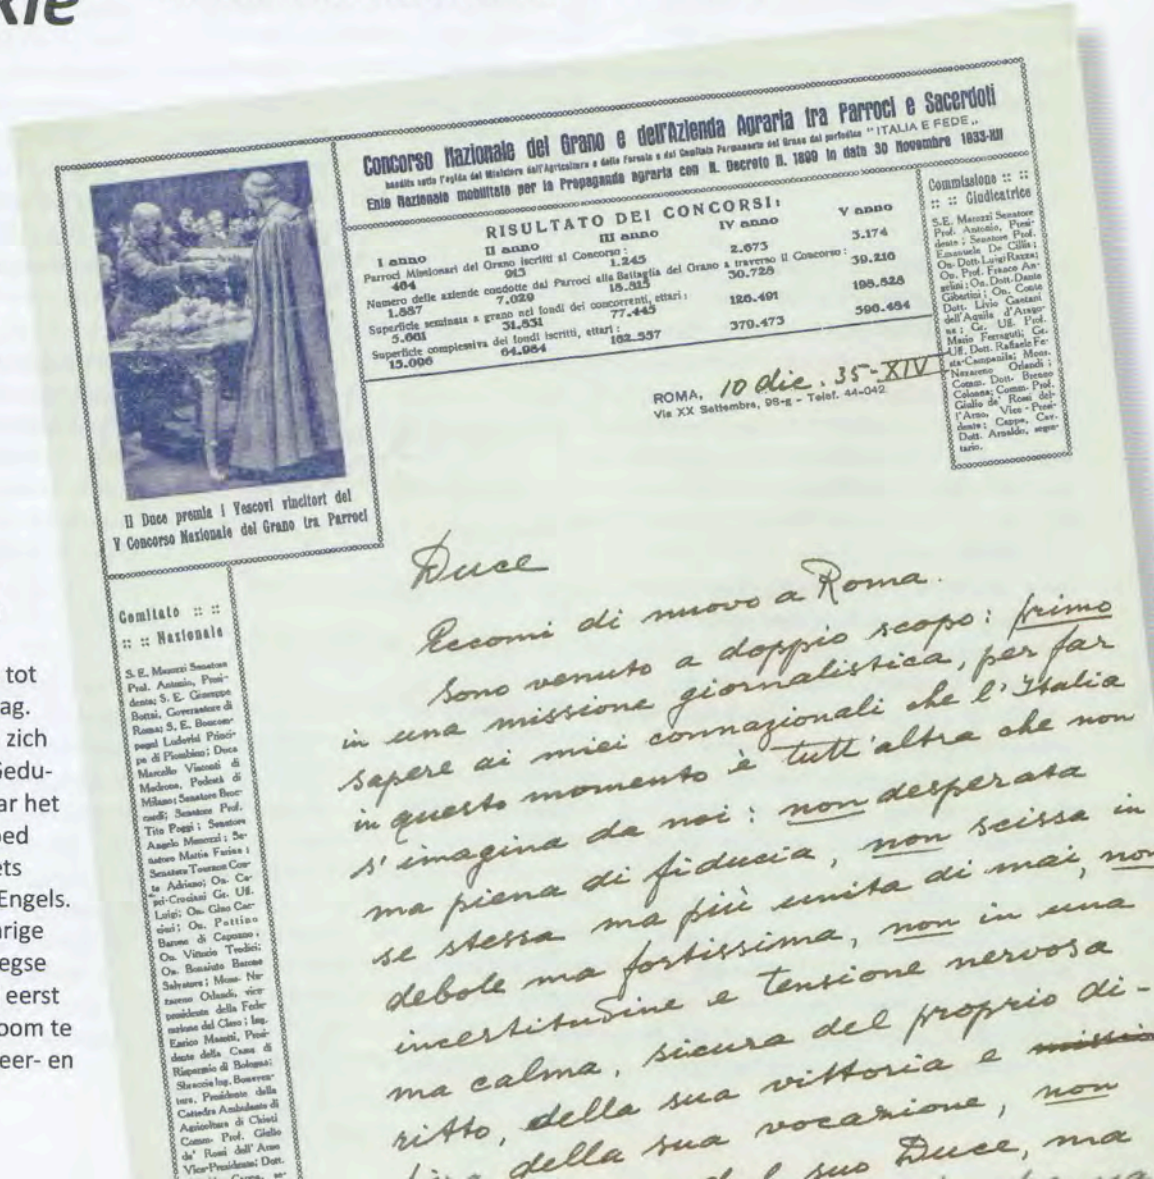 kie
Concorso Nazionale del Grano e dell'Azienda Agraria tra Parroci e Sacerdoti
bandito sotto l'egida del Ministero dell'Agricoltura e delle Foreste e dal Comitato Permanente del Grano dal periodico "ITALIA E FEDE„
Ente Nazionale mobilitato per la Propaganda agraria con R. Decreto N. 1899 in data 30 Novembre 1933-XII
RISULTATO DEI CONCORSI:
I anno II anno III anno IV anno V anno
Parroci Missionari del Grano iscritti al Concorso:
464 913 1.245 2.673 3.174
Numero delle aziende condotte dai Parroci alla Battaglia del Grano a traverso il Concorso:
1.887 7.029 15.315 30.728 39.210
Superficie seminata a grano nei fondi dei concorrenti, ettari:
5.661 31.831 77.445 126.491 198.828
Superficie complessiva dei fondi iscritti, ettari:
15.096 64.984 162.557 379.473 596.484
Commissione :: ::
:: :: Giudicatrice
S.E. Marozzi Senatore
Prof. Antonio, Presi-
dente; Senatore Prof.
Emanuele De Cillis;
On. Dott. Luigi Razza;
On. Prof. Franco An-
gelini; On. Dott. Dante
Gibertini; On. Conte
Dott. Livio Gaetani
dell'Aquila d'Arago-
na; Gr. Uff. Prof.
Mario Ferraguti; Gr.
Uff. Dott. Raffaele Fe-
sta-Campanile; Mons.
Nazareno Orlandi;
Comm. Dott. Brenno
Colonna; Comm. Prof.
Giulio de' Rossi del-
l'Arno, Vice-Presi-
dente; Cappa, Cav.
Dott. Arnaldo, segre-
tario.
ROMA, 10 dic. 35-XIV
Via XX Settembre, 98-g - Telef. 44-042
Il Duce premia i Vescovi vincitori del
V Concorso Nazionale del Grano tra Parroci
Comitato :: ::
:: :: Nazionale
S. E. Marozzi Senatore
Prof. Antonio, Presi-
dente; S. E. Giuseppe
Bottai, Governatore di
Roma; S. E. Boncom-
pagni Ludovisi Princi-
pe di Piombino; Duca
Marcello Visconti di
Modrone, Podestà di
Milano; Senatore
Senatore Prof.
Tito Poggi; Senatore
Angelo Menozzi; Se-
natore Mattia Farina;
Senatore Tournon Con-
te Adriano; On. Ca-
pri-Cruciani Gr. Uff.
Luigi; On. Gino Cac-
ciari; On. Pottino
Barone di Capuano,
On. Vittorio Tredici;
On. Bonaiuto Barone
Salvatore; Mons. Na-
zareno Orlandi, vice-
presidente della Fede-
razione del Clero; Ing.
Enrico Masetti, Presi-
dente della Cassa di
Risparmio di Bologna;
Ing. Bonaven-
tura, Presidente della
Cattedra Ambulante di
Agricoltura di Chieti
Comm. Prof. Giulio
de' Rossi dell'Arno
Vice-Presidente; Dott.
Cappa, se-
Duce
Eccomi di nuovo a Roma.
Sono venuto a doppio scopo: primo
in una missione giornalistica, per far
sapere ai miei connazionali che l'Italia
in questo momento è tutt'altra che non
s'imagina da noi: non desperata
ma piena di fiducia, non scissa in
se stessa ma più unita di mai, non
debole ma fortissima, non in una
incertitudine e tensione nervosa
ma calma, sicura del proprio di-
ritto, della sua vittoria e
della sua vocazione, non
suo Duce, ma
tot
ag.
zich
Gedu-
ar het
oed
ets
Engels.
arige
egse
eerst
oom te
eer- en